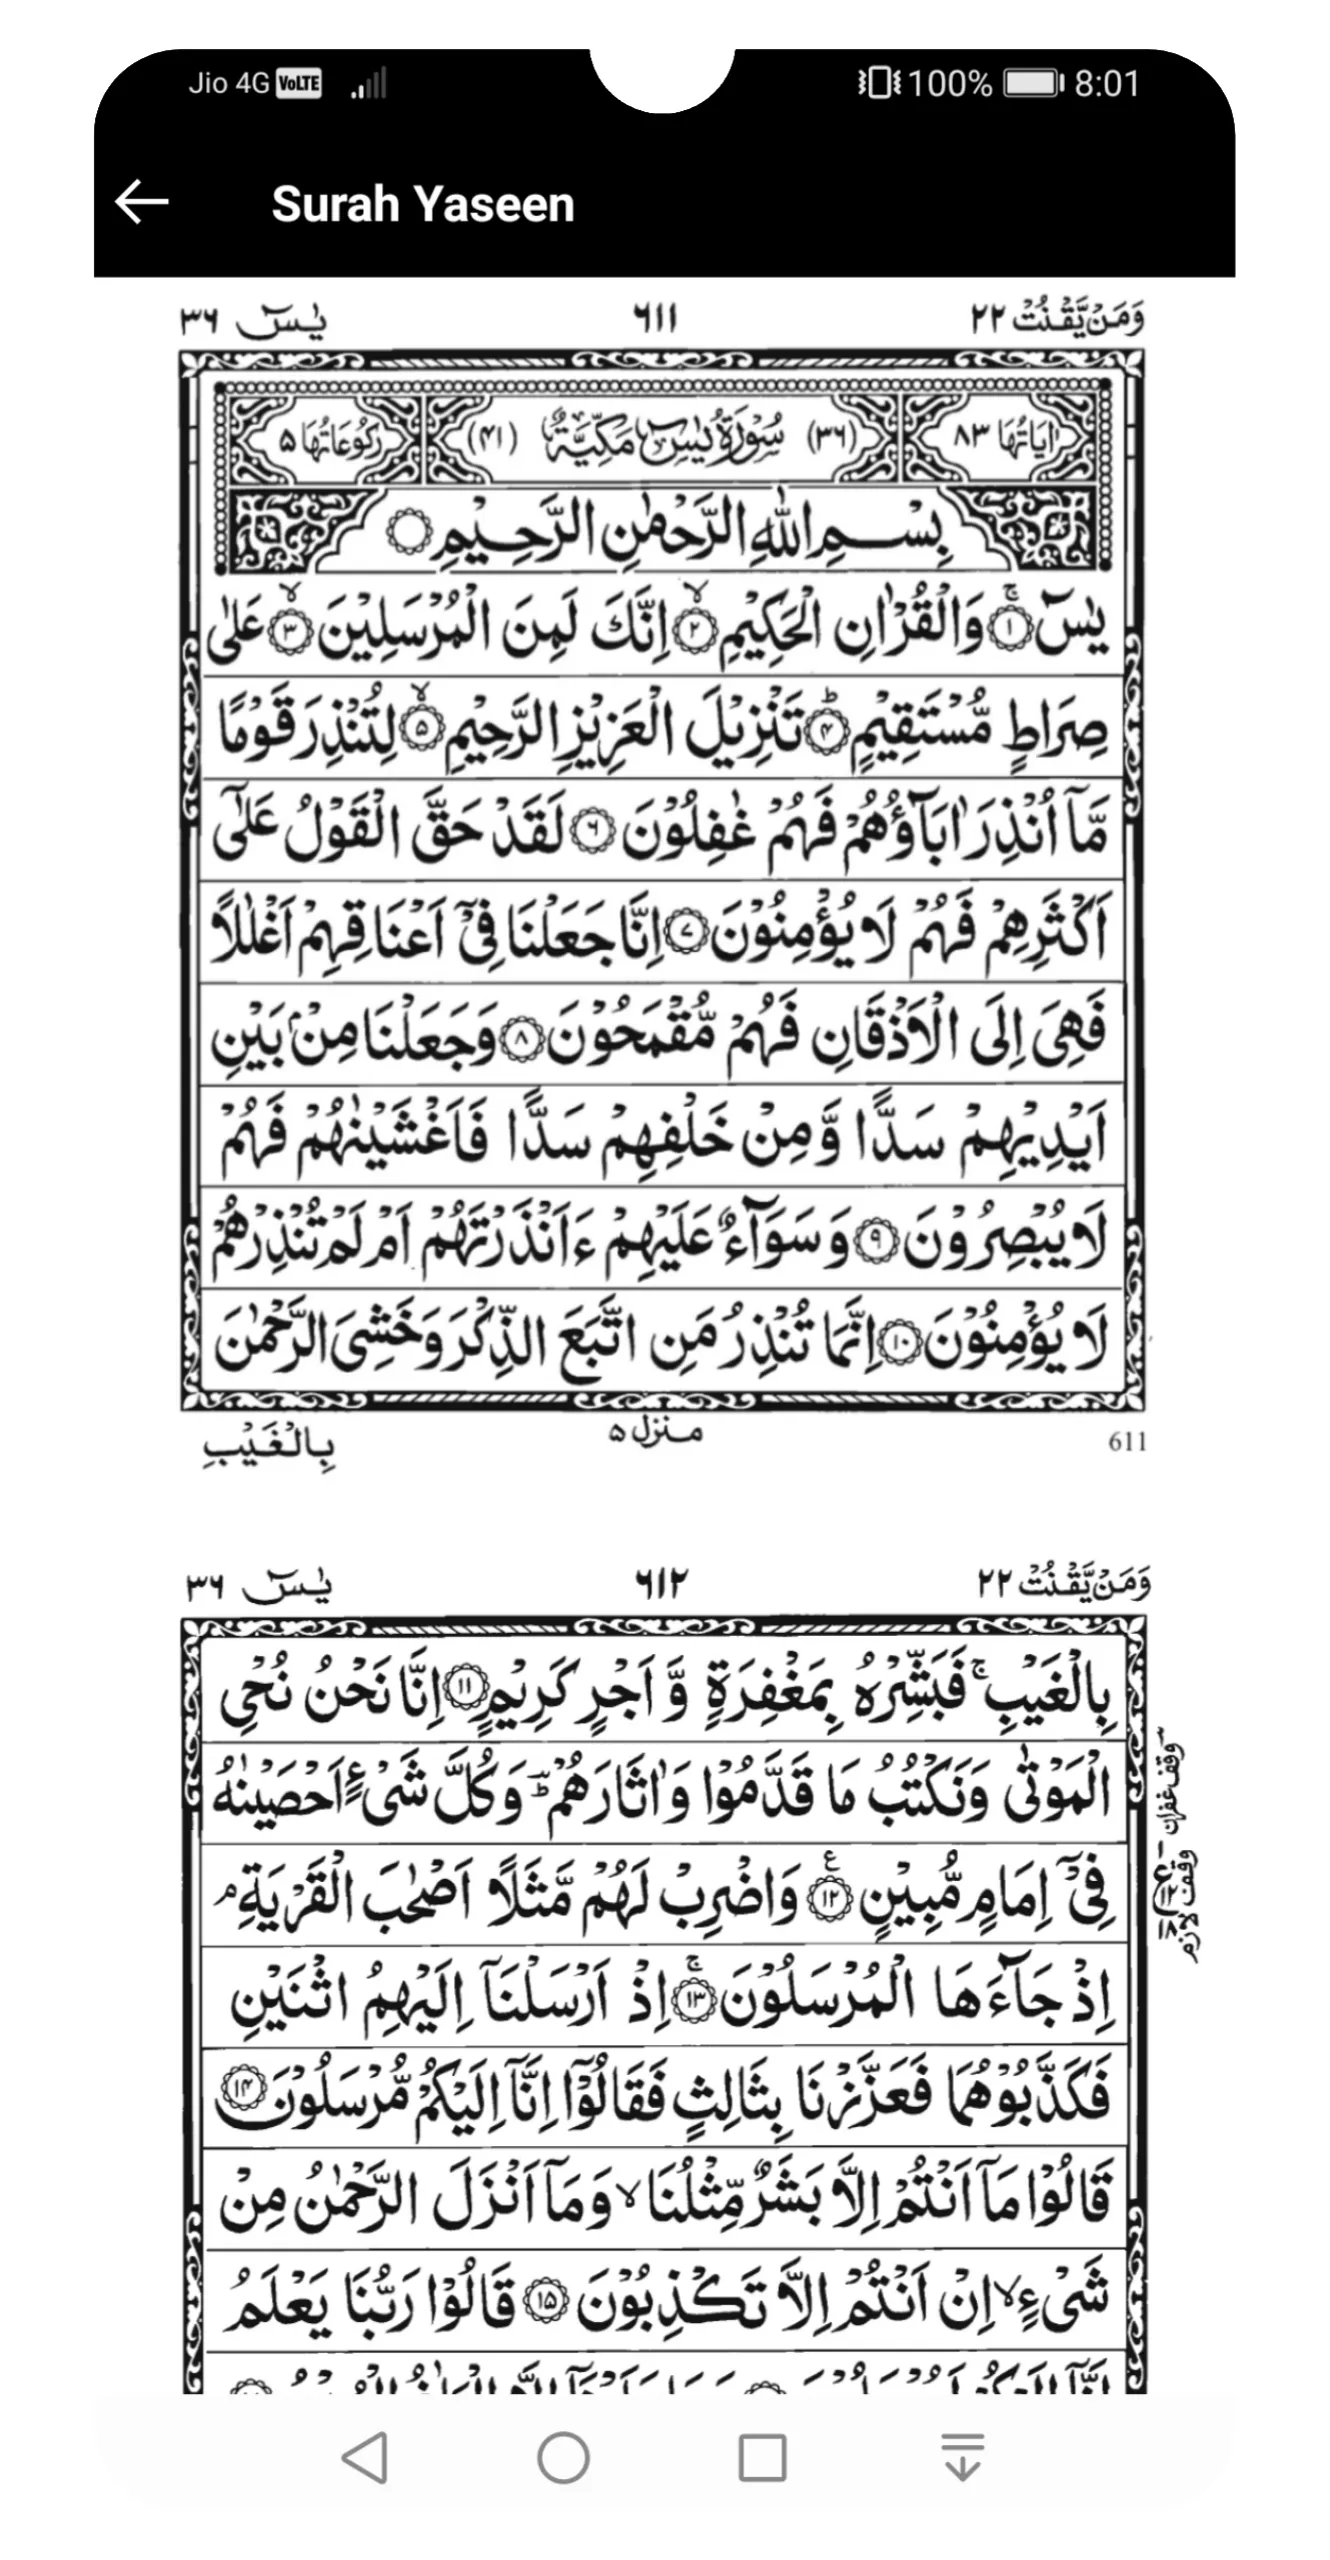 Jio 4G VoLTE 100% 8:01
Surah Yaseen
وَمَنْ يَّقْنُتْ ٢٢ ٦١١ يٰسٓ ٣٦
اٰيَاتُهَا ٨٣ (٣٦) سُوْرَةُ يٰسٓ مَكِّيَّةٌ (٤١) رُكُوْعَاتُهَا ٥
بِسْمِ اللّٰهِ الرَّحْمٰنِ الرَّحِيْمِ
يٰسٓ ۚ﴿١﴾ وَالْقُرْاٰنِ الْحَكِيْمِ ۙ﴿٢﴾ اِنَّكَ لَمِنَ الْمُرْسَلِيْنَ ۙ﴿٣﴾ عَلٰى
صِرَاطٍ مُّسْتَقِيْمٍ ؕ﴿٤﴾ تَنْزِيْلَ الْعَزِيْزِ الرَّحِيْمِ ۙ﴿٥﴾ لِتُنْذِرَ قَوْمًا
مَّاۤ اُنْذِرَ اٰبَآؤُهُمْ فَهُمْ غٰفِلُوْنَ ﴿٦﴾ لَقَدْ حَقَّ الْقَوْلُ عَلٰٓى
اَكْثَرِهِمْ فَهُمْ لَا يُؤْمِنُوْنَ ﴿٧﴾ اِنَّا جَعَلْنَا فِيْۤ اَعْنَاقِهِمْ اَغْلٰلًا
فَهِيَ اِلَى الْاَذْقَانِ فَهُمْ مُّقْمَحُوْنَ ﴿٨﴾ وَجَعَلْنَا مِنْۢ بَيْنِ
اَيْدِيْهِمْ سَدًّا وَّمِنْ خَلْفِهِمْ سَدًّا فَاَغْشَيْنٰهُمْ فَهُمْ
لَا يُبْصِرُوْنَ ﴿٩﴾ وَسَوَآءٌ عَلَيْهِمْ ءَاَنْذَرْتَهُمْ اَمْ لَمْ تُنْذِرْهُمْ
لَا يُؤْمِنُوْنَ ﴿١٠﴾ اِنَّمَا تُنْذِرُ مَنِ اتَّبَعَ الذِّكْرَ وَخَشِيَ الرَّحْمٰنَ
611 منزل ٥ بِالْغَيْبِ
وَمَنْ يَّقْنُتْ ٢٢ ٦١٢ يٰسٓ ٣٦
بِالْغَيْبِ ۚ فَبَشِّرْهُ بِمَغْفِرَةٍ وَّاَجْرٍ كَرِيْمٍ ﴿١١﴾ اِنَّا نَحْنُ نُحْيِ
الْمَوْتٰى وَنَكْتُبُ مَا قَدَّمُوْا وَاٰثَارَهُمْ ؕ وَكُلَّ شَيْءٍ اَحْصَيْنٰهُ
فِيْۤ اِمَامٍ مُّبِيْنٍ ﴿١٢﴾ وَاضْرِبْ لَهُمْ مَّثَلًا اَصْحٰبَ الْقَرْيَةِ ۘ
اِذْ جَآءَهَا الْمُرْسَلُوْنَ ۚ﴿١٣﴾ اِذْ اَرْسَلْنَاۤ اِلَيْهِمُ اثْنَيْنِ
فَكَذَّبُوْهُمَا فَعَزَّزْنَا بِثَالِثٍ فَقَالُوْۤا اِنَّاۤ اِلَيْكُمْ مُّرْسَلُوْنَ ﴿١٤﴾
قَالُوْا مَاۤ اَنْتُمْ اِلَّا بَشَرٌ مِّثْلُنَا ۙ وَمَاۤ اَنْزَلَ الرَّحْمٰنُ مِنْ
شَيْءٍ ۙ اِنْ اَنْتُمْ اِلَّا تَكْذِبُوْنَ ﴿١٥﴾ قَالُوْا رَبُّنَا يَعْلَمُ
وقف غفران
وقف لازم